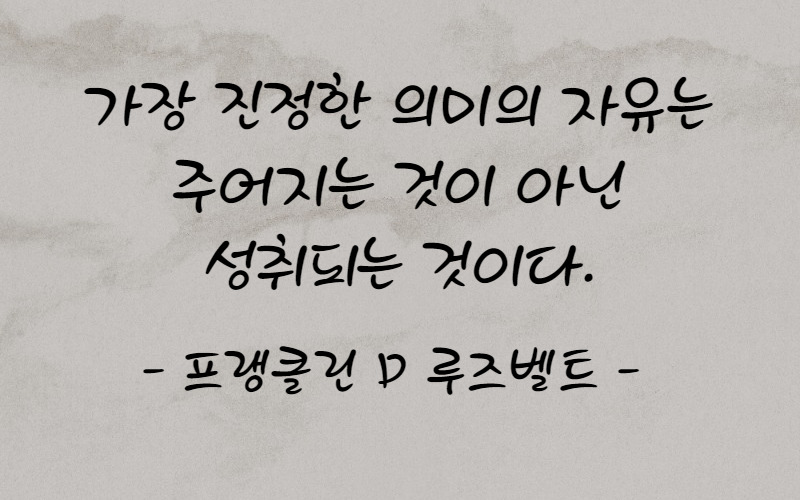 가장 진정한 의미의 자유는
주어지는 것이 아닌
성취되는 것이다.
- 프랭클린 D 루즈벨트 -